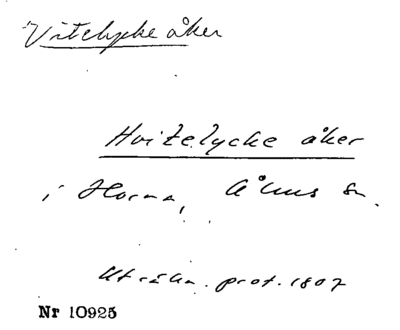 Vitelycke åker
Hvitelycke åker
i Horna, Åhus sn.
Uträkn. prot. 1807
Nr 10925